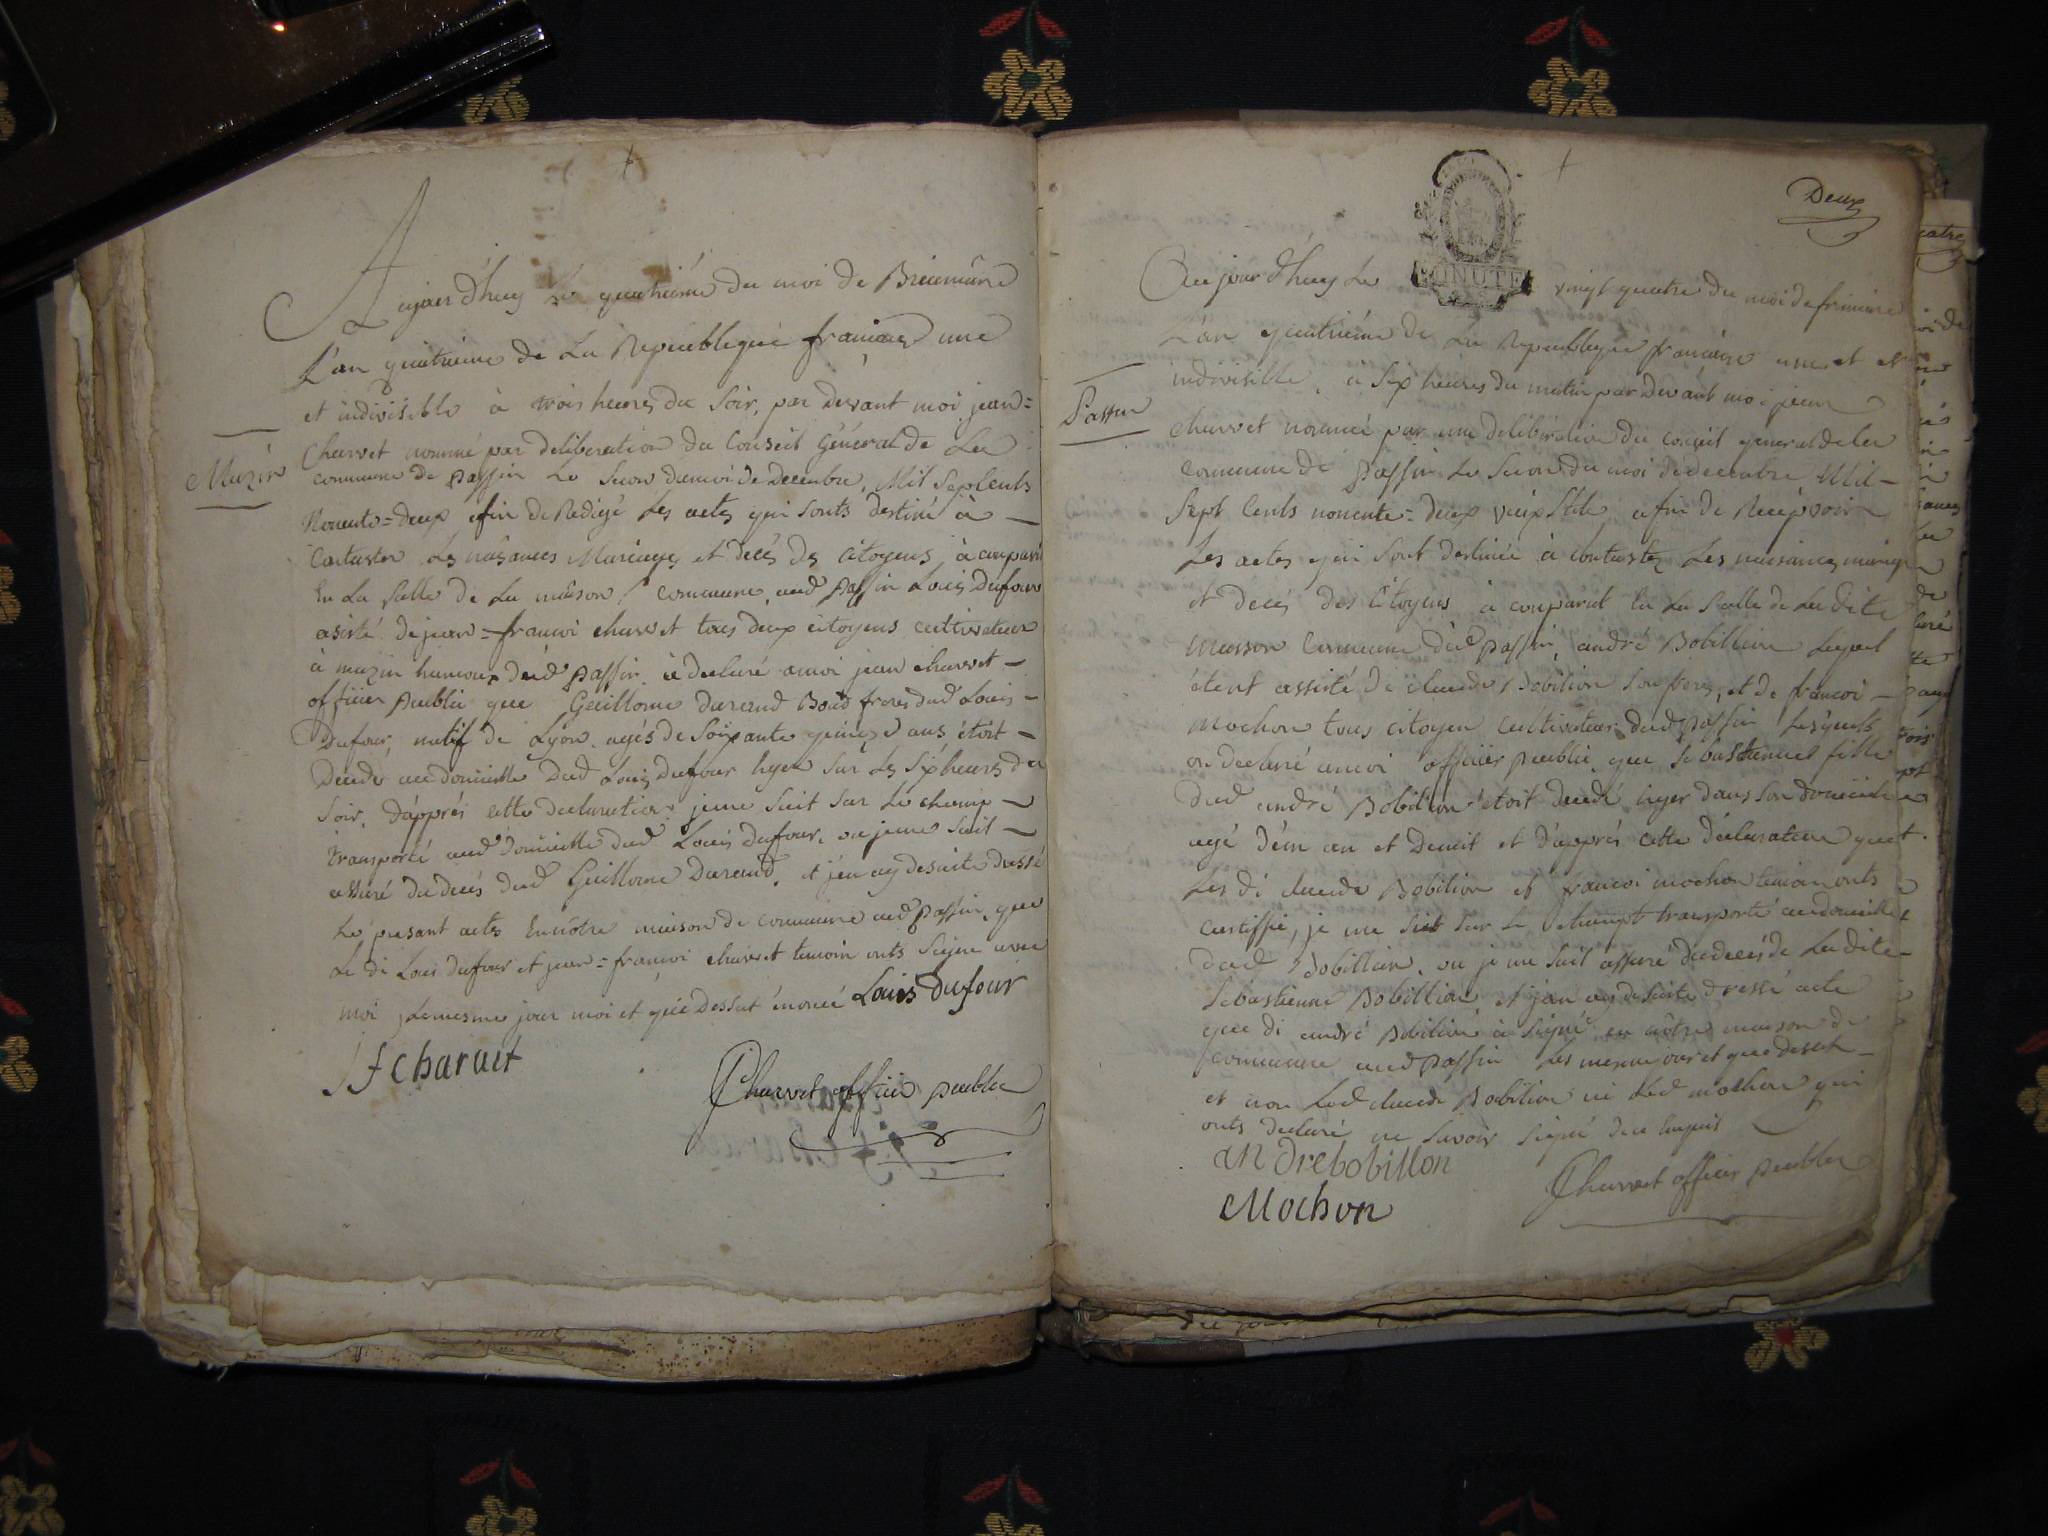 Aujourd'huy le quatriéme du moi de Breumaire
L'an quatrieme de La Republeque francaise une
et indivisible à trois heures du Soir, par devant moi jean=
Charvet nommé par deliberation du Conseil Général de La
Muzin
commune de Passin le Secon du moi de Decembre, Mil Sept Cents
Nonente=deux afin de Redigé Les actes qui Sonts destiné à
Les naisances Mariages et decés des Citoyens, à comparu
En La Salle de La maison commune, aud Passin Louis Dufour
asisté de jean=francoi charvet tous deux citoyens cultivateur
à muzin hameau dud Passin à declaré amoi jean charvet
officier Publie que Guillome Durand Boud freres dud Louis
Dufour, natif de Lyon agés de Soixante quinze ans étoit
Decedé au domicille dud Louis Dufour hyer Sur Les Six heures du
Soir, d'apprés cette declaration jeme Suit Sur Le champ
transporté aud Domicille dud Louis Dufour, ou jeme Suit
assuré du decés dud Guillome Durand, et jen ay desuite dressé
Le present actes En nôtre maison de commune aud Passin, que
Le di Loui Dufour et jean=francoi charvet temoin onts Signe avec
moi Le mesme jour moi et que dessut énoncé Louis Dufour
J f charvet
Charvet officié publec
Deux
MINUTE
Aujour d'huy Le vingt quatre du moi de frimaire
L'an quatriéme de La Republeque francaise une et
indivisible, à Six heures du matin par Devant moi jean
Passin
charvet nommé par une deliberation du conseil general de La
commune de Passin Le Secon du moi de decembre Mil
Sept Cents nonente=deux vieux Stile afin de Recepvoir
Les actes qui Sont destinée à Les naisances mariage
et decés des Citoyens à comparut En La Salle de La dite
Maison Commune dud Passin, andré Bobillion Lequel
étent assisté de claude Bobilion Son frere, et de francoi
Mochon tous citoyen cultivateur dud Passin Lesquels
on declaré amoi officiér publie, que Sebastienne fille
dud andré Bobilion étoit decedé hyer dans Son domicile
agé d'un an et Demit et d'apprés cette déclaration que
Les di claude Bobilion et francoi mochon temoin onts
certiffié, je me Suit Sur Le champt transporté au domicille
dud Bobillion, ou je me Suit assuré du decés de La dite
Sebastienne Bobillion et jan ay desuite dressé acte
que di andré Bobilion à Signé en nôtre maison de
commune aud Passin Les mesme jour et que desut
et non Led claude Bobilion ni Led mochon qui
onts declaré ne Savoir Signé de ce Enquis
andrebobillon
Mochon
Charvet officier publec